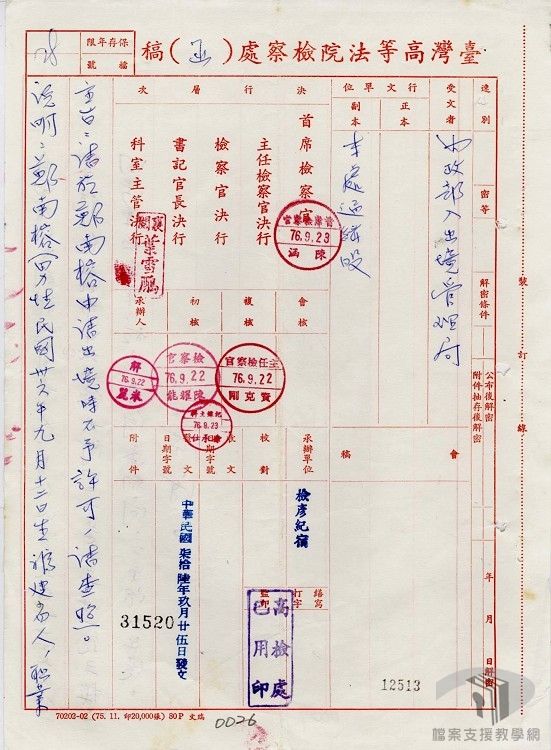 臺灣高等法院檢察處（函）稿
保存年限
檔號
速別
密等
解密條件
公布後解密
附件抽存後解密
年月日解密
裝訂線
受文者
內政部入出境管理局
行文單位
正本
副本
本處區紀股
會稿
12513
決行層次
首席檢察官
主任檢察官決行
檢察官決行
書記官長決行
科室主管決行
襄閱
葉雪鵬
首席檢察官
76.9.23
陳涵
會核
複核
初核
承辦人
主任檢察官
76.9.22
賀克剛
檢察官
76.9.22
陳耀能
76.9.22
76.9.23
承辦單位
檢彥紀宿
核對
收文
日期字號
發文
日期字號
附件
繕寫
打字
監印
高檢處
已用印
中華民國柒拾陸年玖月廿五日發文
31520
主旨：請於鄭南榕申請出境時不予許可，請查照。
說明：鄭南榕男性民國卅六年九月十二日生福建省人，職業
70202-02 (75. 11. 印20,000張) 80P 文瑞
0026
檔案支援教學網